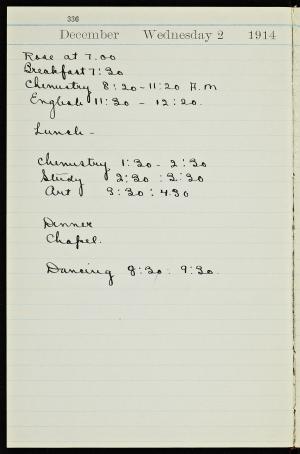 336
December Wednesday 2 1914
Rose at 7.00
Breakfast 7:30
Chemistry 8:20-11:20 A.M
English 11:20 - 12:20.
Lunch -
Chemistry 1:30 - 2:30
Study 2:30 : 3:30
Art 3:30 : 4.30
Dinner
Chapel.
Dancing 8:30 : 9:30.